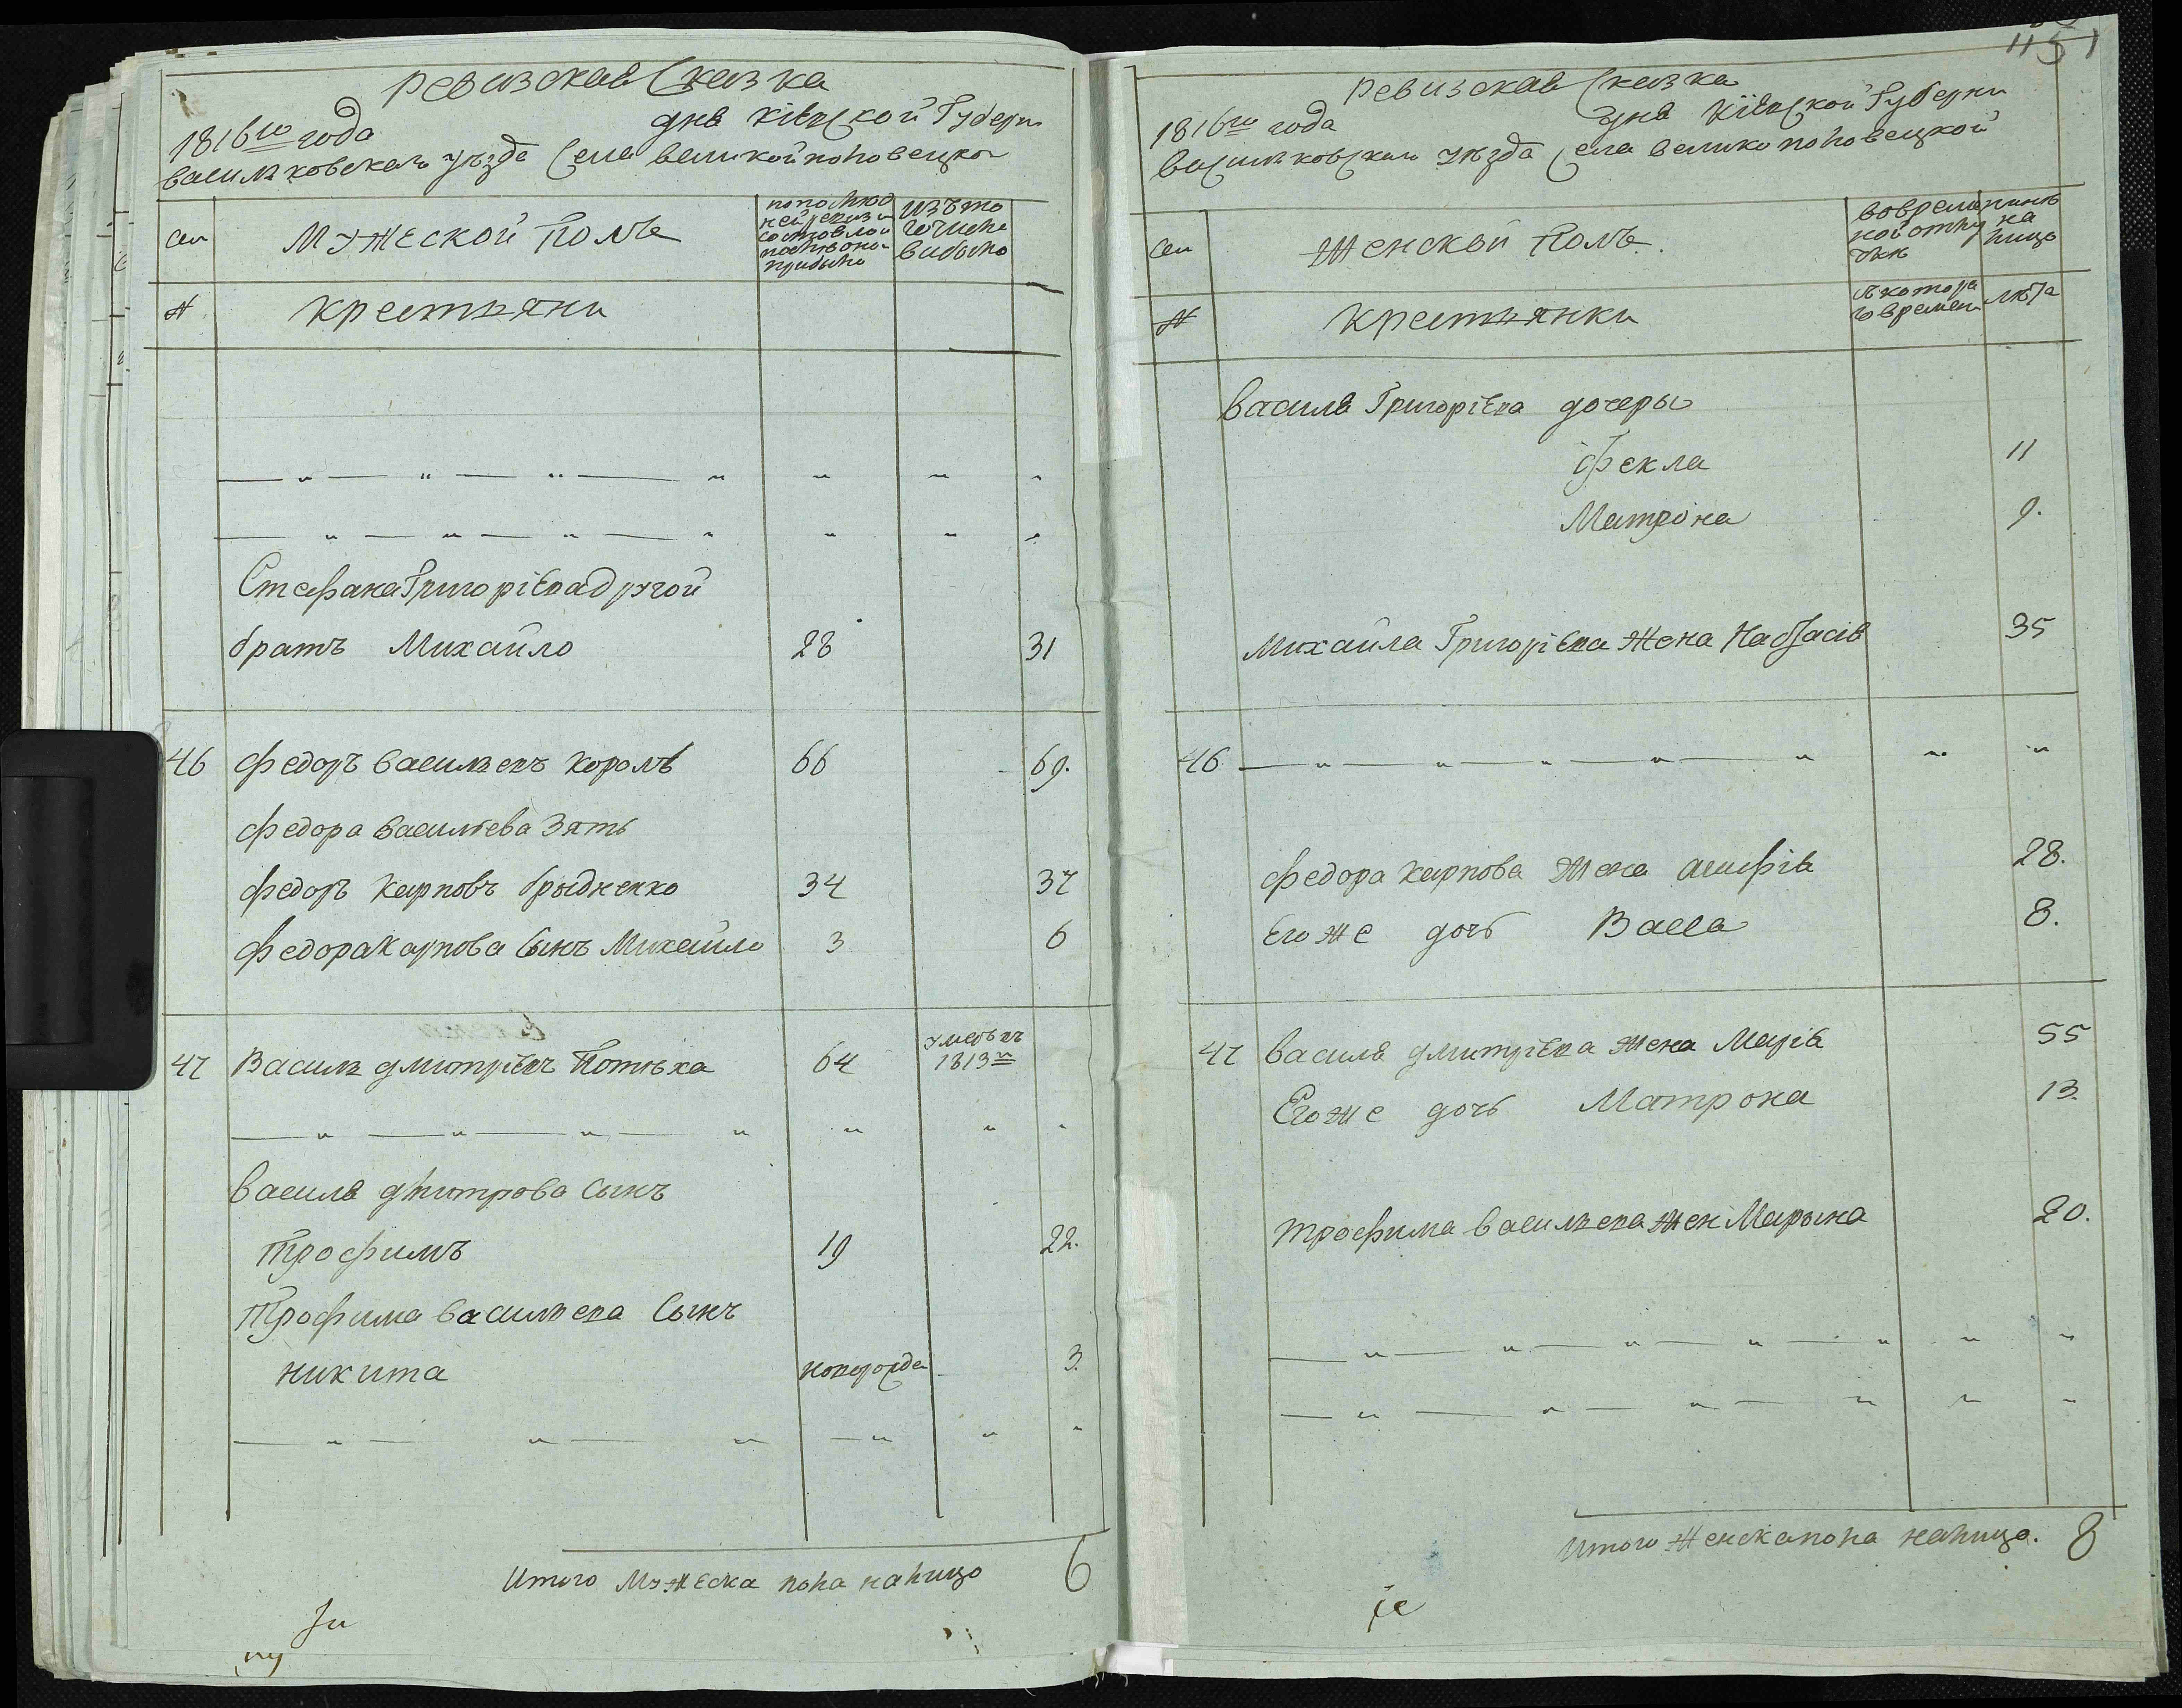 ревизская Сказка
1816го года
дня Кіевской Губерн
васильковскаго уъзда Села великой половецко
Сем
Мужеской Полъ
по послюд
ней ревизи
состояло и
после оной
прибыло
Изъ то
го числа
выбыло
№
крестьяни
Стефана Григоріева другой
братъ Михайло 28 31
46 федоръ васильевъ король 66 69.
федора васильева Зять
федоръ карповъ брыдненко 34 37
федора карпова Сынъ Михайло 3 6
47 Василь дмитріевъ Потюка 64 умеръ въ 1813м
василя дмитрова Сынъ
трофимъ 19 22.
трофима васильева Сынъ
никита новорожде 3.
Итого Мужеска пола налицо 6
1151
ревизская Сказка
1816го года
дня Кіевской Губерни
васильковскаго уъзда Села велико половецкой
Сем
Женской Полъ.
вовремен
ной отлу
чкъ
налицо
№
крестьянки
съ котора
го времени
лъта
василя Григоріева дочеры
Фекла 11
Матрона 9.
Михайла Григоріева жена Настасія 35
46
федора карпова жена агафія 28.
Его же дочь Васса 8.
47 василя дмитріева жена Марія 55
Его же дочь Матрона 13.
трофима васильева жен Марына 20.
Итого Женска пола налицо. 8